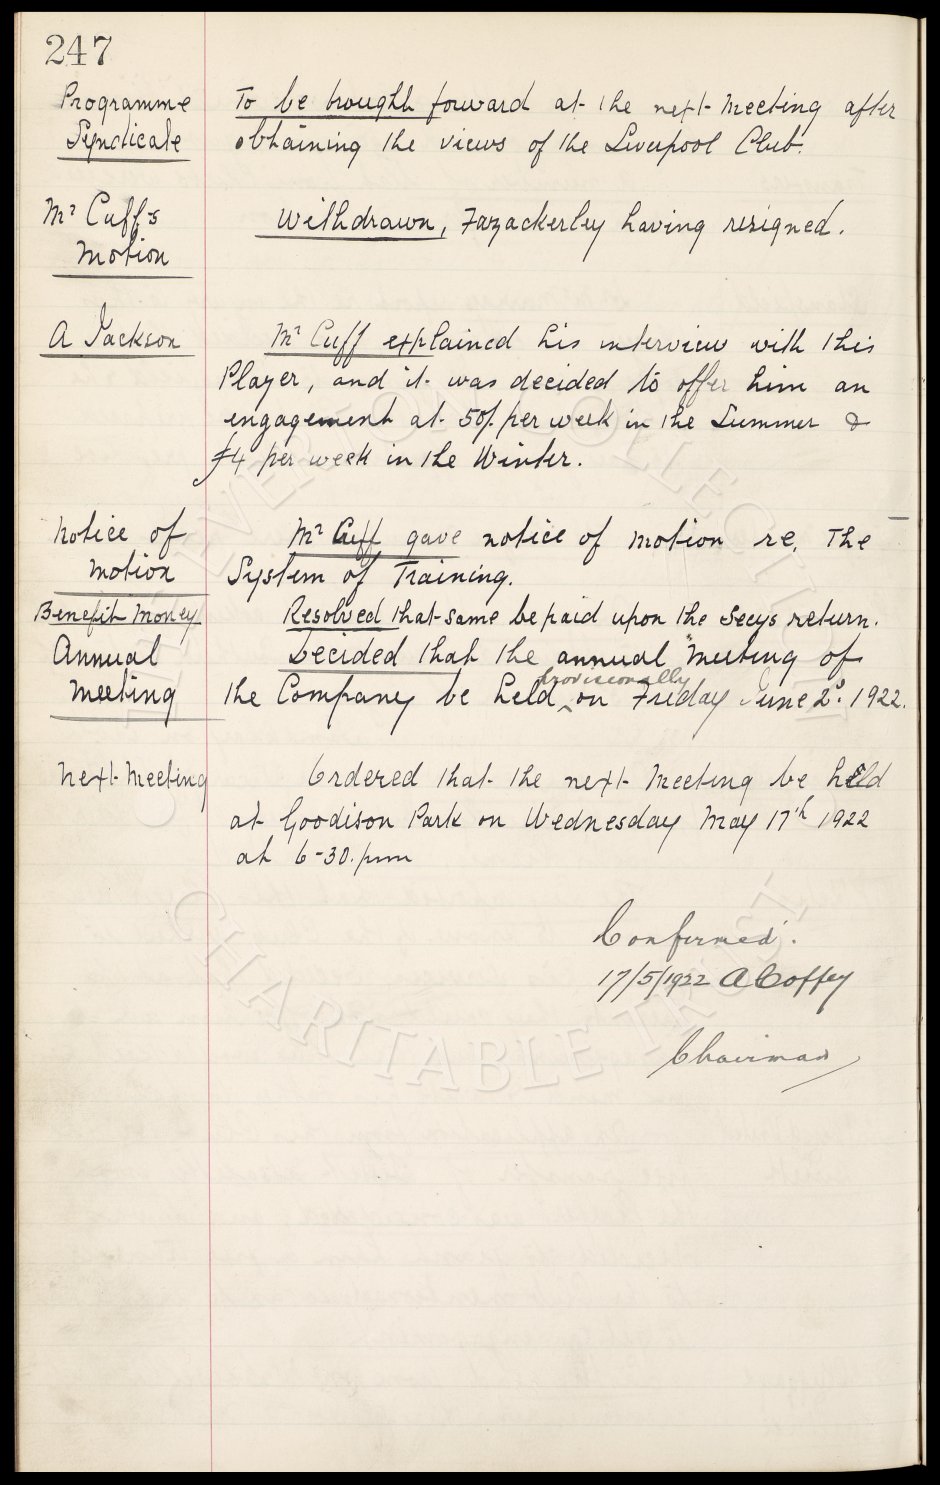 247
Programme To be brought forward at the next Meeting after
Syndicate obtaining the views of the Liverpool Club.
Mr Cuff's Withdrawn, Fazackerley having resigned.
Motion
A Jackson Mr Cuff explained his interview with this
Player, and it was decided to offer him an
engagement at 50/- per week in the Summer &
£4 per week in the Winter.
Notice of Mr Cuff gave notice of motion re, The
Motion System of Training.
Benefit Money Resolved that same be paid upon the Secys return.
Annual Decided that the annual meeting of
Meeting the Company be held ^provisionally on Friday June 2d. 1922.
Next Meeting Ordered that the next Meeting be held
at Goodison Park on Wednesday May 17th 1922
at 6-30. pm
Confirmed.
17/5/1922 A Coffey
Chairman
EVERTON COLLECTION
CHARITABLE TRUST